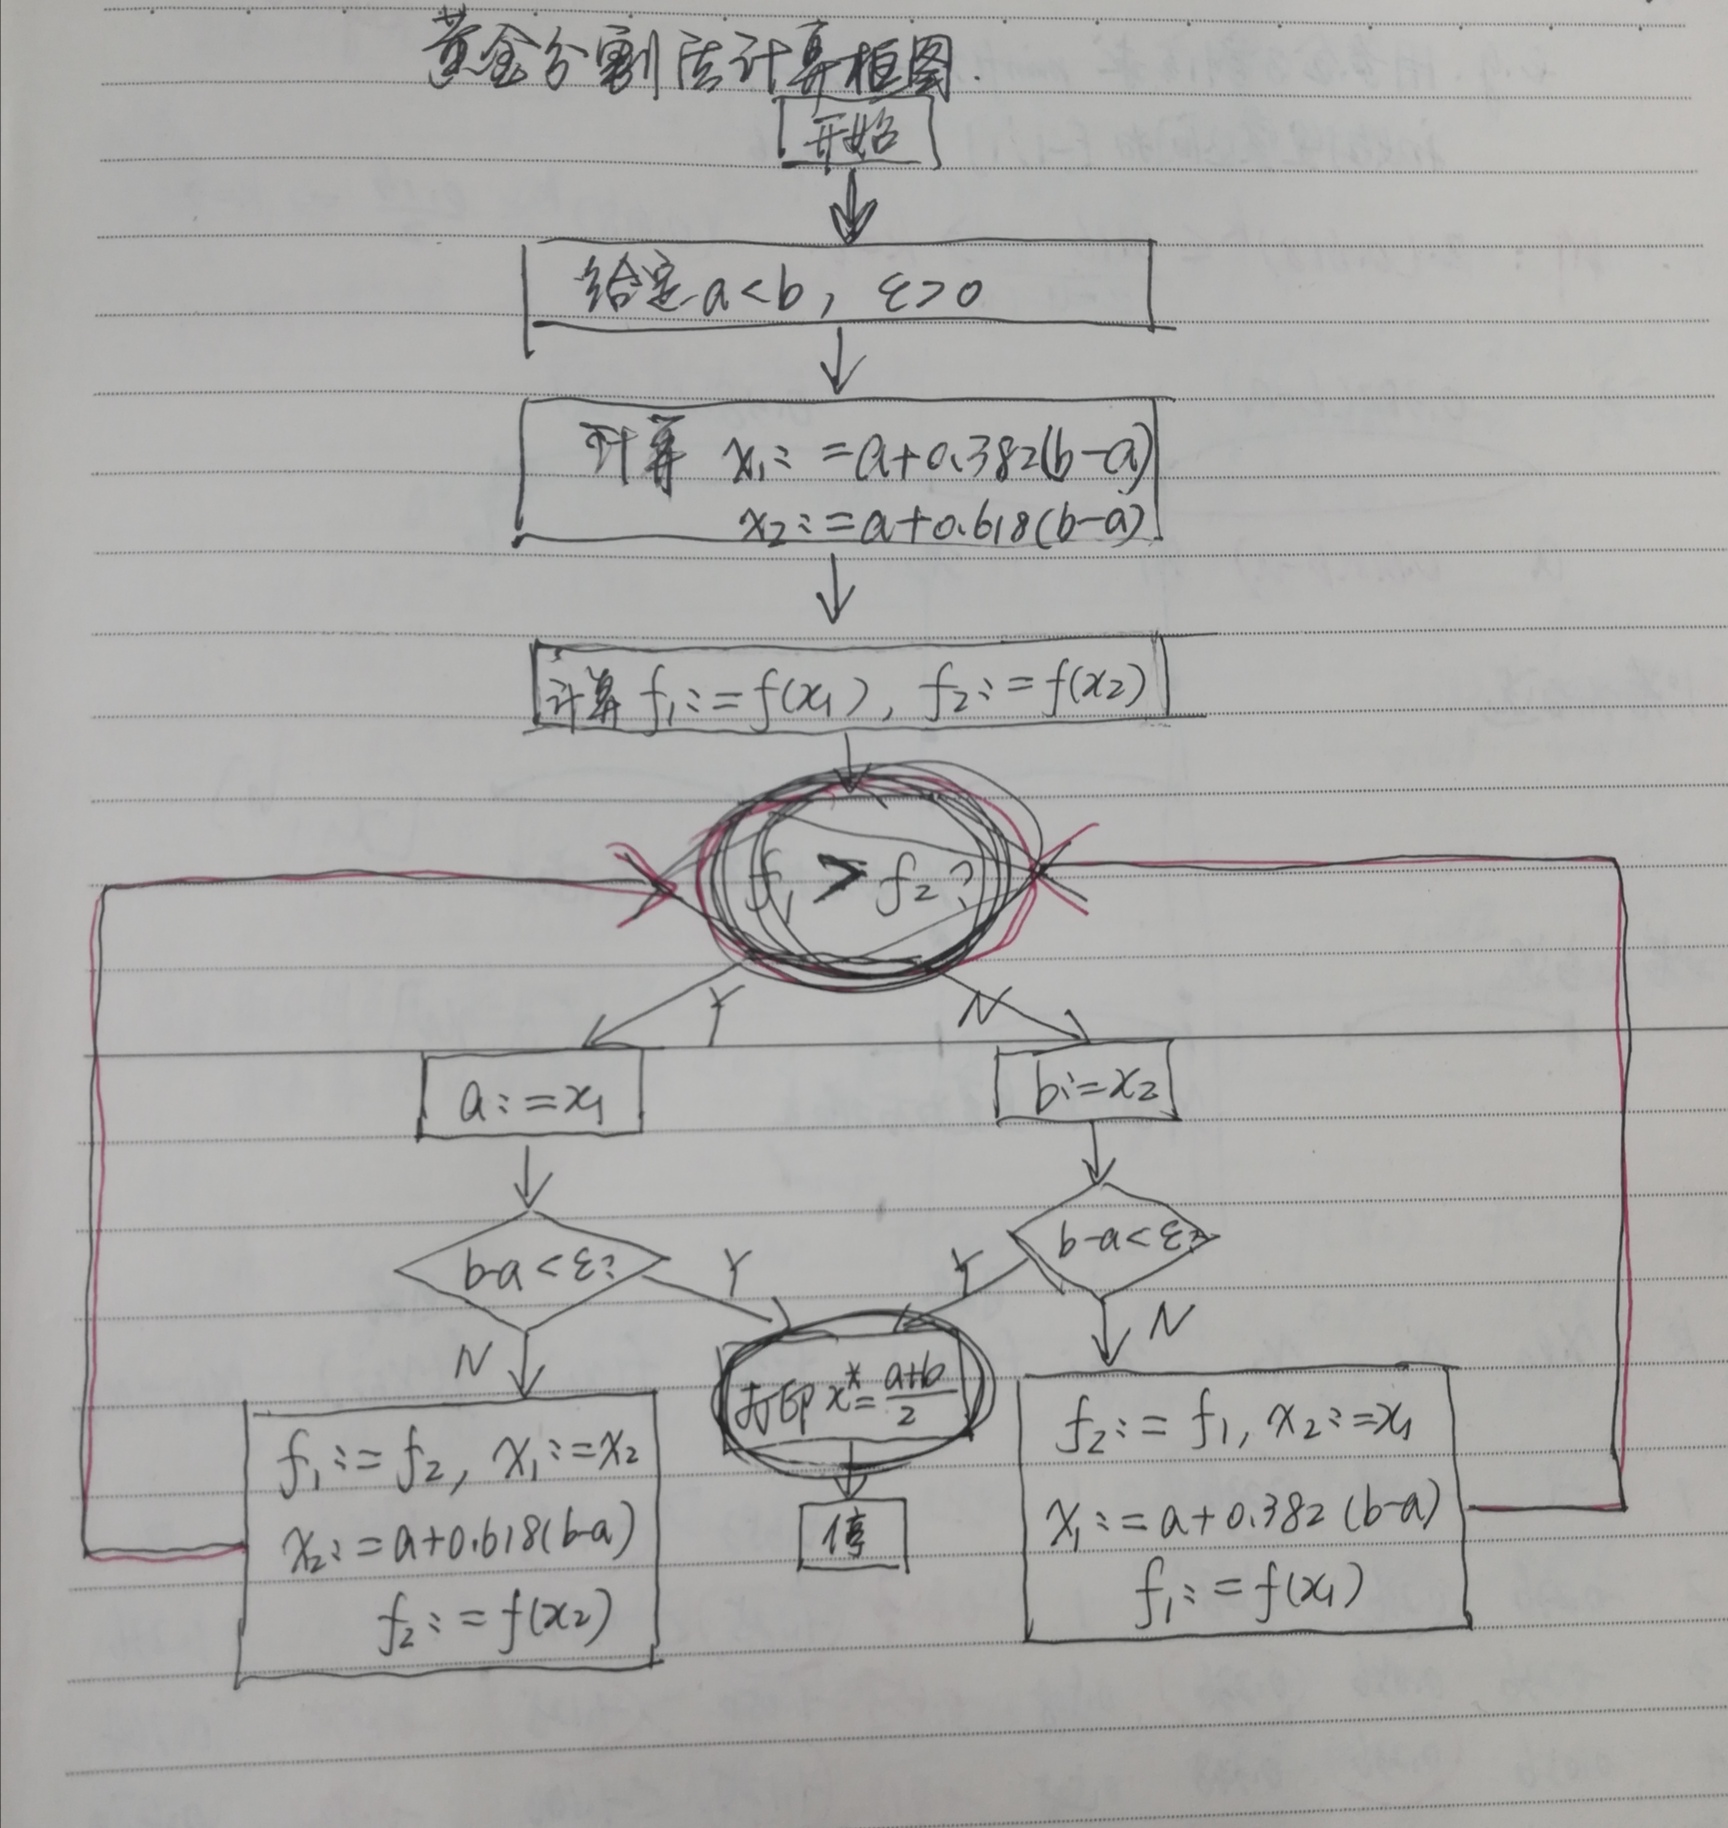 黄金分割法计算框图.
开始
给定 a<b, ε>0
计算 x₁:=a+0.382(b-a)
x₂:=a+0.618(b-a)
计算 f₁:=f(x₁), f₂:=f(x₂)
f₁>f₂?
Y N
a:=x₁
b:=x₂
b-a<ε?
b-a<ε?
Y Y
N N
打印 x*=a+b/2
停
f₁:=f₂, x₁:=x₂
x₂:=a+0.618(b-a)
f₂:=f(x₂)
f₂:=f₁, x₂:=x₁
x₁:=a+0.382(b-a)
f₁:=f(x₁)